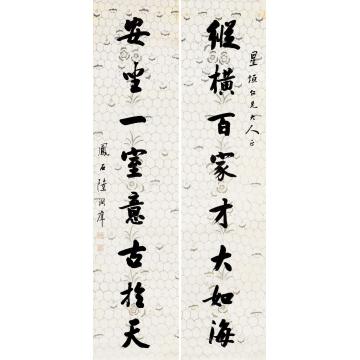 縱橫百家才大如海
星垣仁兄大人正
安坐一室意古於天
鳳石陸潤庠